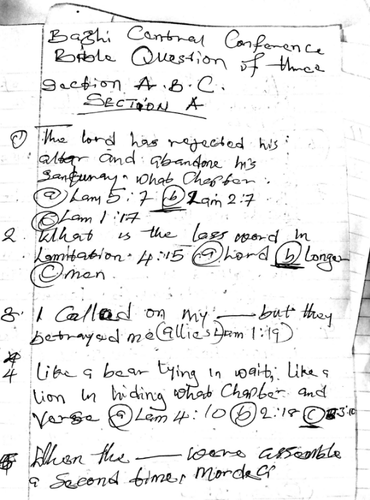 Bazhi Central Conference
Bible Question of three
Section A.B.C.
SECTION A
① The lord has rejected his
alter and abandone his
Santunary. what Chapter.
ⓐ Lam 5:7 ⓑ Lam 2:7
ⓒ Lam 1:17
2. What is the last word in
Lamitation. 4:15 ⓐ Lord ⓑ Longer
ⓒ men
3. I Called on my ___ but they
betrayed me (allies Lam 1:19)
4 Like a bear lying in wait, like a
lion in hiding what Chapter and
Verse ⓐ Lam 4:10 ⓑ 2:18 ⓒ 3:10
5 When the ___ were assemble
a Second time, Mordeca